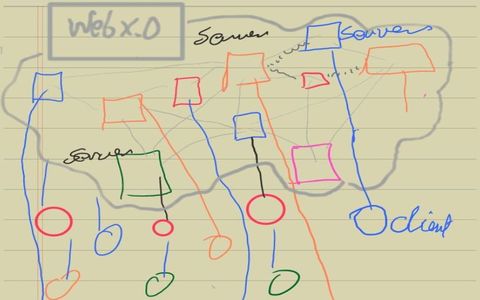 Web x.0
Server
Servers
Server
client